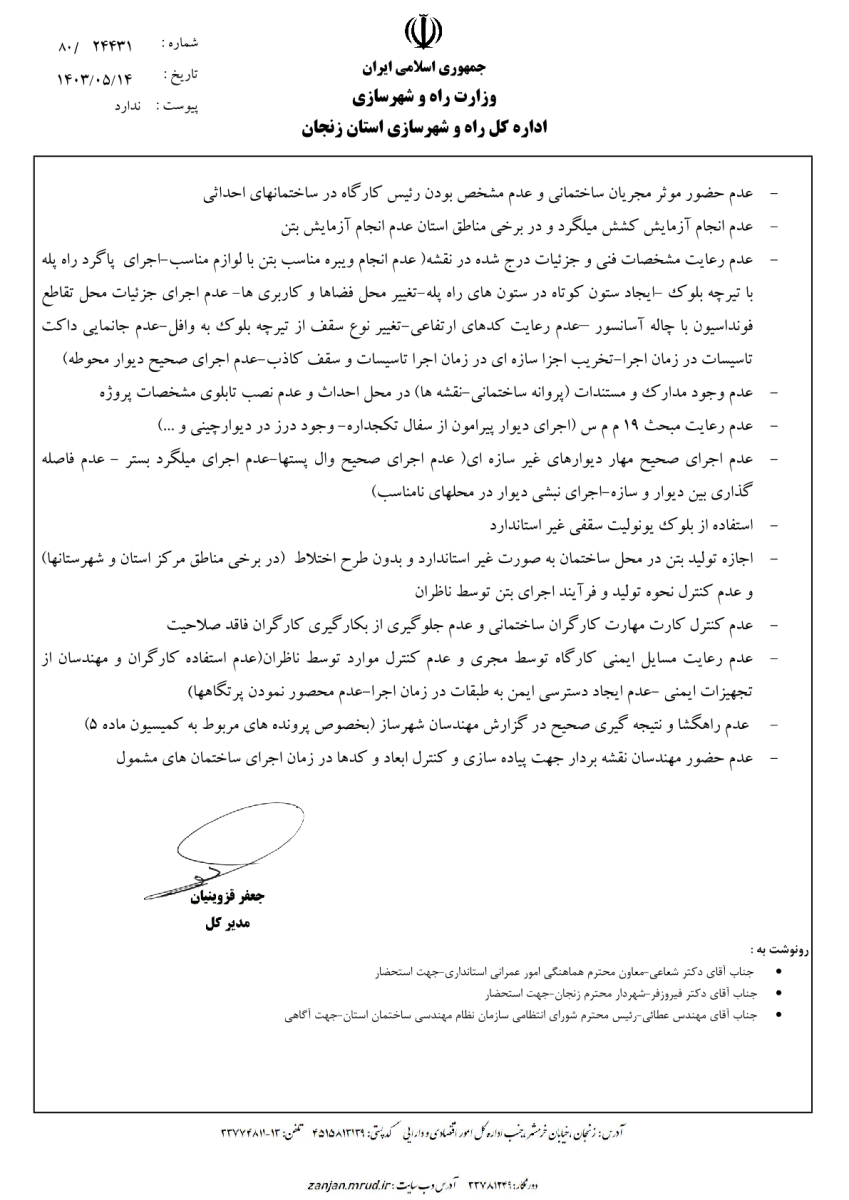 جمهوری اسلامی ایران
وزارت راه و شهرسازی
اداره کل راه و شهرسازی استان زنجان
شماره : ۲۴۴۳۱ /۸۰
تاریخ : ۱۴۰۳/۰۵/۱۴
پیوست : ندارد
– عدم حضور موثر مجریان ساختمانی و عدم مشخص بودن رئیس کارگاه در ساختمانهای احداثی
– عدم انجام آزمایش کشش میلگرد و در برخی مناطق استان عدم انجام آزمایش بتن
– عدم رعایت مشخصات فنی و جزئیات درج شده در نقشه( عدم انجام ویبره مناسب بتن با لوازم مناسب-اجرای پاگرد راه پله
با تیرچه بلوک -ایجاد ستون کوتاه در ستون های راه پله-تغییر محل فضاها و کاربری ها- عدم اجرای جزئیات محل تقاطع
فونداسیون با چاله آسانسور –عدم رعایت کدهای ارتفاعی-تغییر نوع سقف از تیرچه بلوک به وافل-عدم جانمایی داکت
تاسیسات در زمان اجرا-تخریب اجزا سازه ای در زمان اجرا تاسیسات و سقف کاذب-عدم اجرای صحیح دیوار محوطه)
– عدم وجود مدارک و مستندات (پروانه ساختمانی-نقشه ها) در محل احداث و عدم نصب تابلوی مشخصات پروژه
– عدم رعایت مبحث ۱۹ م م س (اجرای دیوار پیرامون از سفال تکجداره- وجود درز در دیوارچینی و ...)
– عدم اجرای صحیح مهار دیوارهای غیر سازه ای( عدم اجرای صحیح وال پستها-عدم اجرای میلگرد بستر – عدم فاصله
گذاری بین دیوار و سازه-اجرای نبشی دیوار در محلهای نامناسب)
– استفاده از بلوک یونولیت سقفی غیر استاندارد
– اجازه تولید بتن در محل ساختمان به صورت غیر استاندارد و بدون طرح اختلاط (در برخی مناطق مرکز استان و شهرستانها)
و عدم کنترل نحوه تولید و فرآیند اجرای بتن توسط ناظران
– عدم کنترل کارت مهارت کارگران ساختمانی و عدم جلوگیری از بکارگیری کارگران فاقد صلاحیت
– عدم رعایت مسایل ایمنی کارگاه توسط مجری و عدم کنترل موارد توسط ناظران(عدم استفاده کارگران و مهندسان از
تجهیزات ایمنی -عدم ایجاد دسترسی ایمن به طبقات در زمان اجرا-عدم محصور نمودن پرتگاهها)
– عدم راهگشا و نتیجه گیری صحیح در گزارش مهندسان شهرساز (بخصوص پرونده های مربوط به کمیسیون ماده ۵)
– عدم حضور مهندسان نقشه بردار جهت پیاده سازی و کنترل ابعاد و کدها در زمان اجرای ساختمان های مشمول
جعفر قزوینیان
مدیر کل
رونوشت به :
• جناب آقای دکتر شعاعی-معاون محترم هماهنگی امور عمرانی استانداری-جهت استحضار
• جناب آقای دکتر فیروزفر-شهردار محترم زنجان-جهت استحضار
• جناب آقای مهندس عطائی-رئیس محترم شورای انتظامی سازمان نظام مهندسی ساختمان استان-جهت آگاهی
آدرس : زنجان ،خیابان خرمشهر جنب اداره کل امور اقتصادی و دارایی کدپستی: ۴۵۱۵۸۱۳۱۳۹ تلفن: ۱۳-۳۳۷۷۴۸۱۱
دورنگار: ۳۳۷۸۱۲۴۹ آدرس وب سایت : zanjan.mrud.ir